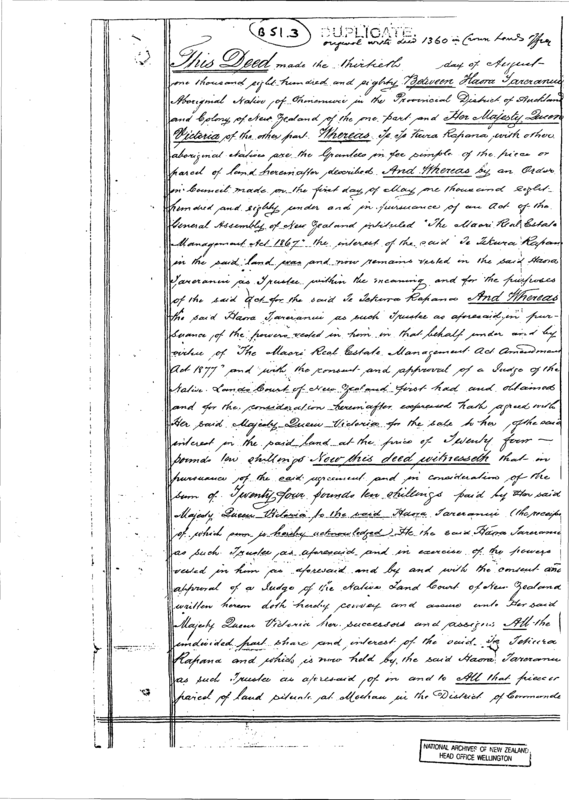 B 51.3
DUPLICATE.
original with deed 1360 – Crown Lands Office
This Deed made the thirtieth day of August
one thousand eight hundred and eighty Between Haora Tareranui
Aboriginal Native of Ohinemuri in the Provincial District of Auckland
and Colony of New Zealand of the one part and Her Majesty Queen
Victoria of the other part. Whereas Te Kura Rapana with other
aboriginal Natives are the Grantees in fee simple of the piece or
parcel of land hereinafter described. And Whereas by an Order
in Council made on the first day of May one thousand eight
hundred and eighty under and in pursuance of an Act of the
General Assembly of New Zealand intituled "The Maori Real Estate
Management Act 1867" the interest of the said Te Tekura Rapana
in the said land was and now remains vested in the said Haora
Tareranui as Trustee within the meaning and for the purposes
of the said Act for the said Te Tekura Rapana And Whereas
the said Haora Tareranui as such Trustee as aforesaid, in pur-
suance of the powers vested in him in that behalf under and by
virtue of "The Maori Real Estate Management Act Amendment
Act 1877" and with the consent and approval of a Judge of the
Native Lands Court of New Zealand first had and obtained
and for the consideration hereinafter expressed hath agreed with
Her said Majesty Queen Victoria for the sale to her of the said
interest in the said land at the price of Twenty four —
pounds ten shillings Now this deed witnesseth that in
pursuance of the said agreement and in consideration of the
sum of Twenty four pounds ten shillings paid by Her said
Majesty Queen Victoria to the said Haora Tareranui (the receipt
of which sum is hereby acknowledged) He the said Haora Tareranui
as such Trustee as aforesaid, and in exercise of the powers
vested in him as aforesaid and by and with the consent and
approval of a Judge of the Native Land Court of New Zealand
written hereon doth hereby convey and assure unto Her said
Majesty Queen Victoria her successors and assigns All the
undivided part share and interest of the said Te Tekura
Rapana and which is now held by the said Haora Tareranui
as such Trustee as aforesaid of in and to All that piece or
parcel of land situate at Moehau in the District of Coromandel
NATIONAL ARCHIVES OF NEW ZEALAND
HEAD OFFICE WELLINGTON